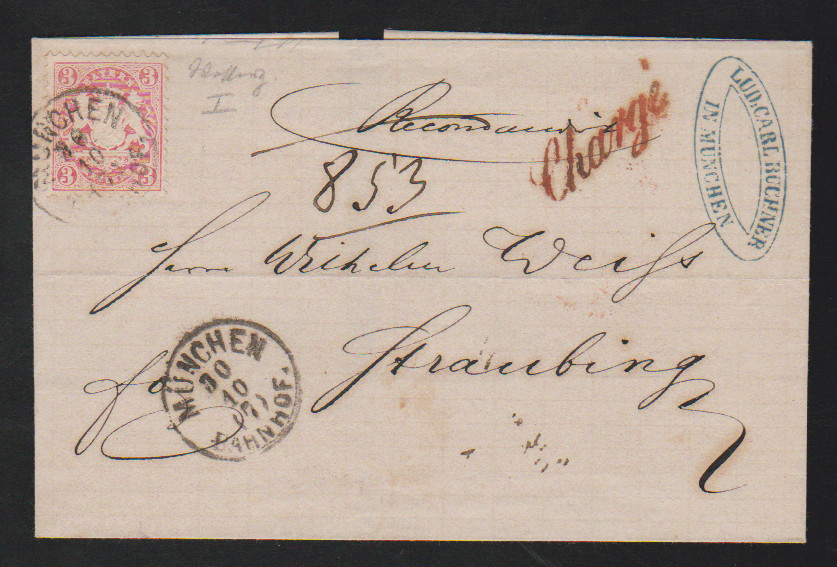 3 BAYERN 3
3 3
MÜNCHEN
10
I
Recomandirt
Chargé
LUD. CARL BUCHNER
IN MÜNCHEN
853
Herrn Wilhelm Weiss
fo Straubing
MÜNCHEN
30
10
BAHNHOF.